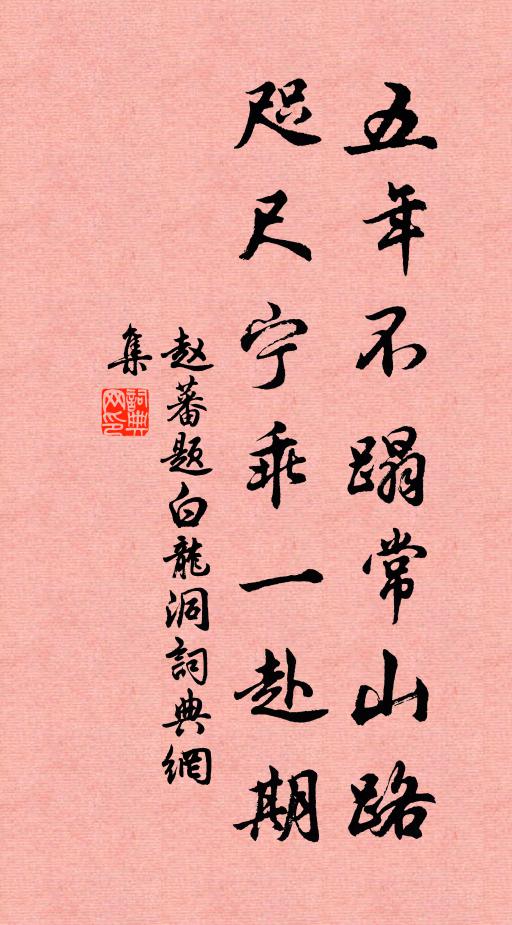 五年不蹋常山路
咫尺宁乖一赴期
赵蕃题白龍洞詞典網
集
詞典網印